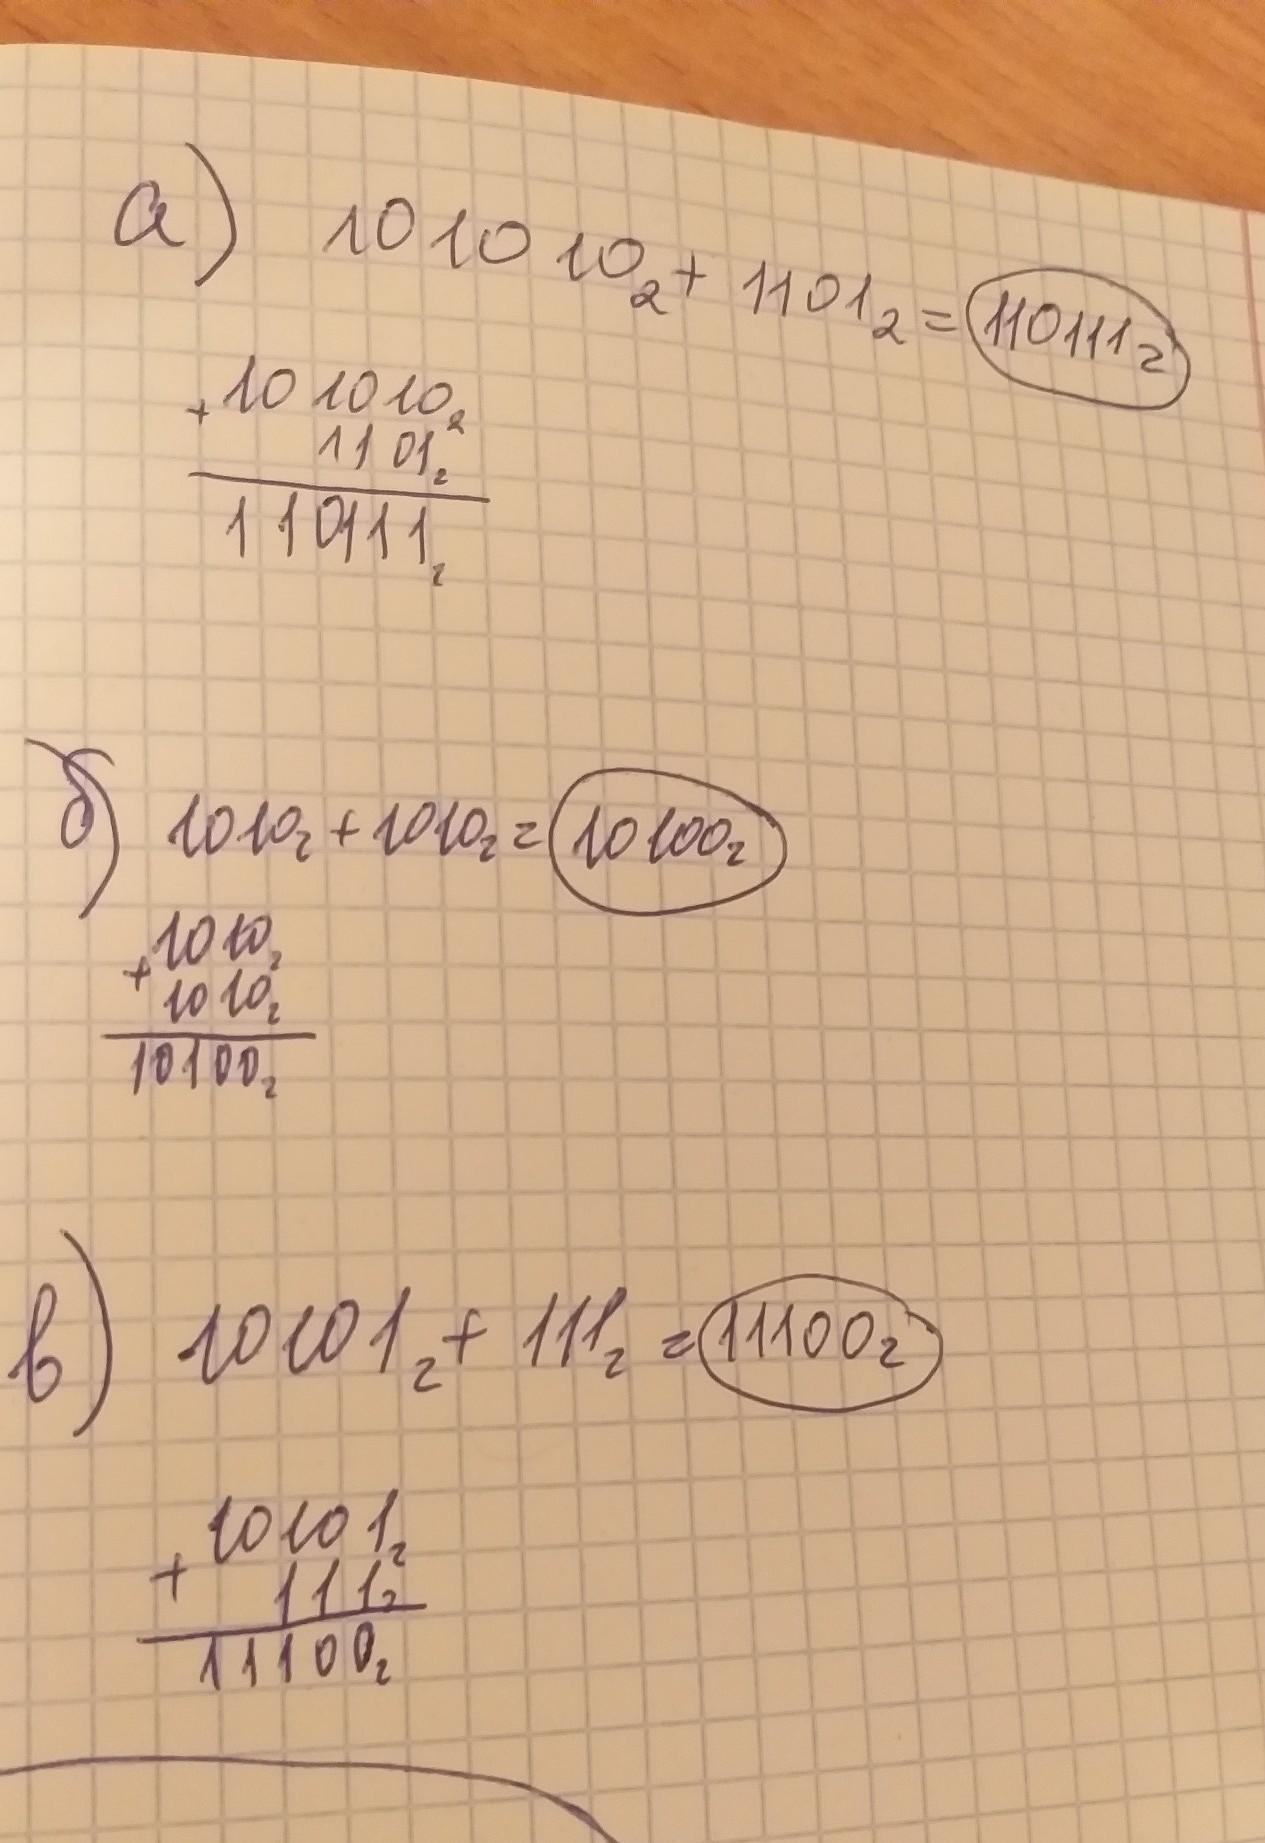 а) 101010₂ + 1101₂ = 110111₂
+ 101010₂
1101₂
110111₂
б) 1010₂ + 1010₂ = 10100₂
+ 1010₂
1010₂
10100₂
в) 10101₂ + 111₂ = 11100₂
+ 10101₂
111₂
11100₂